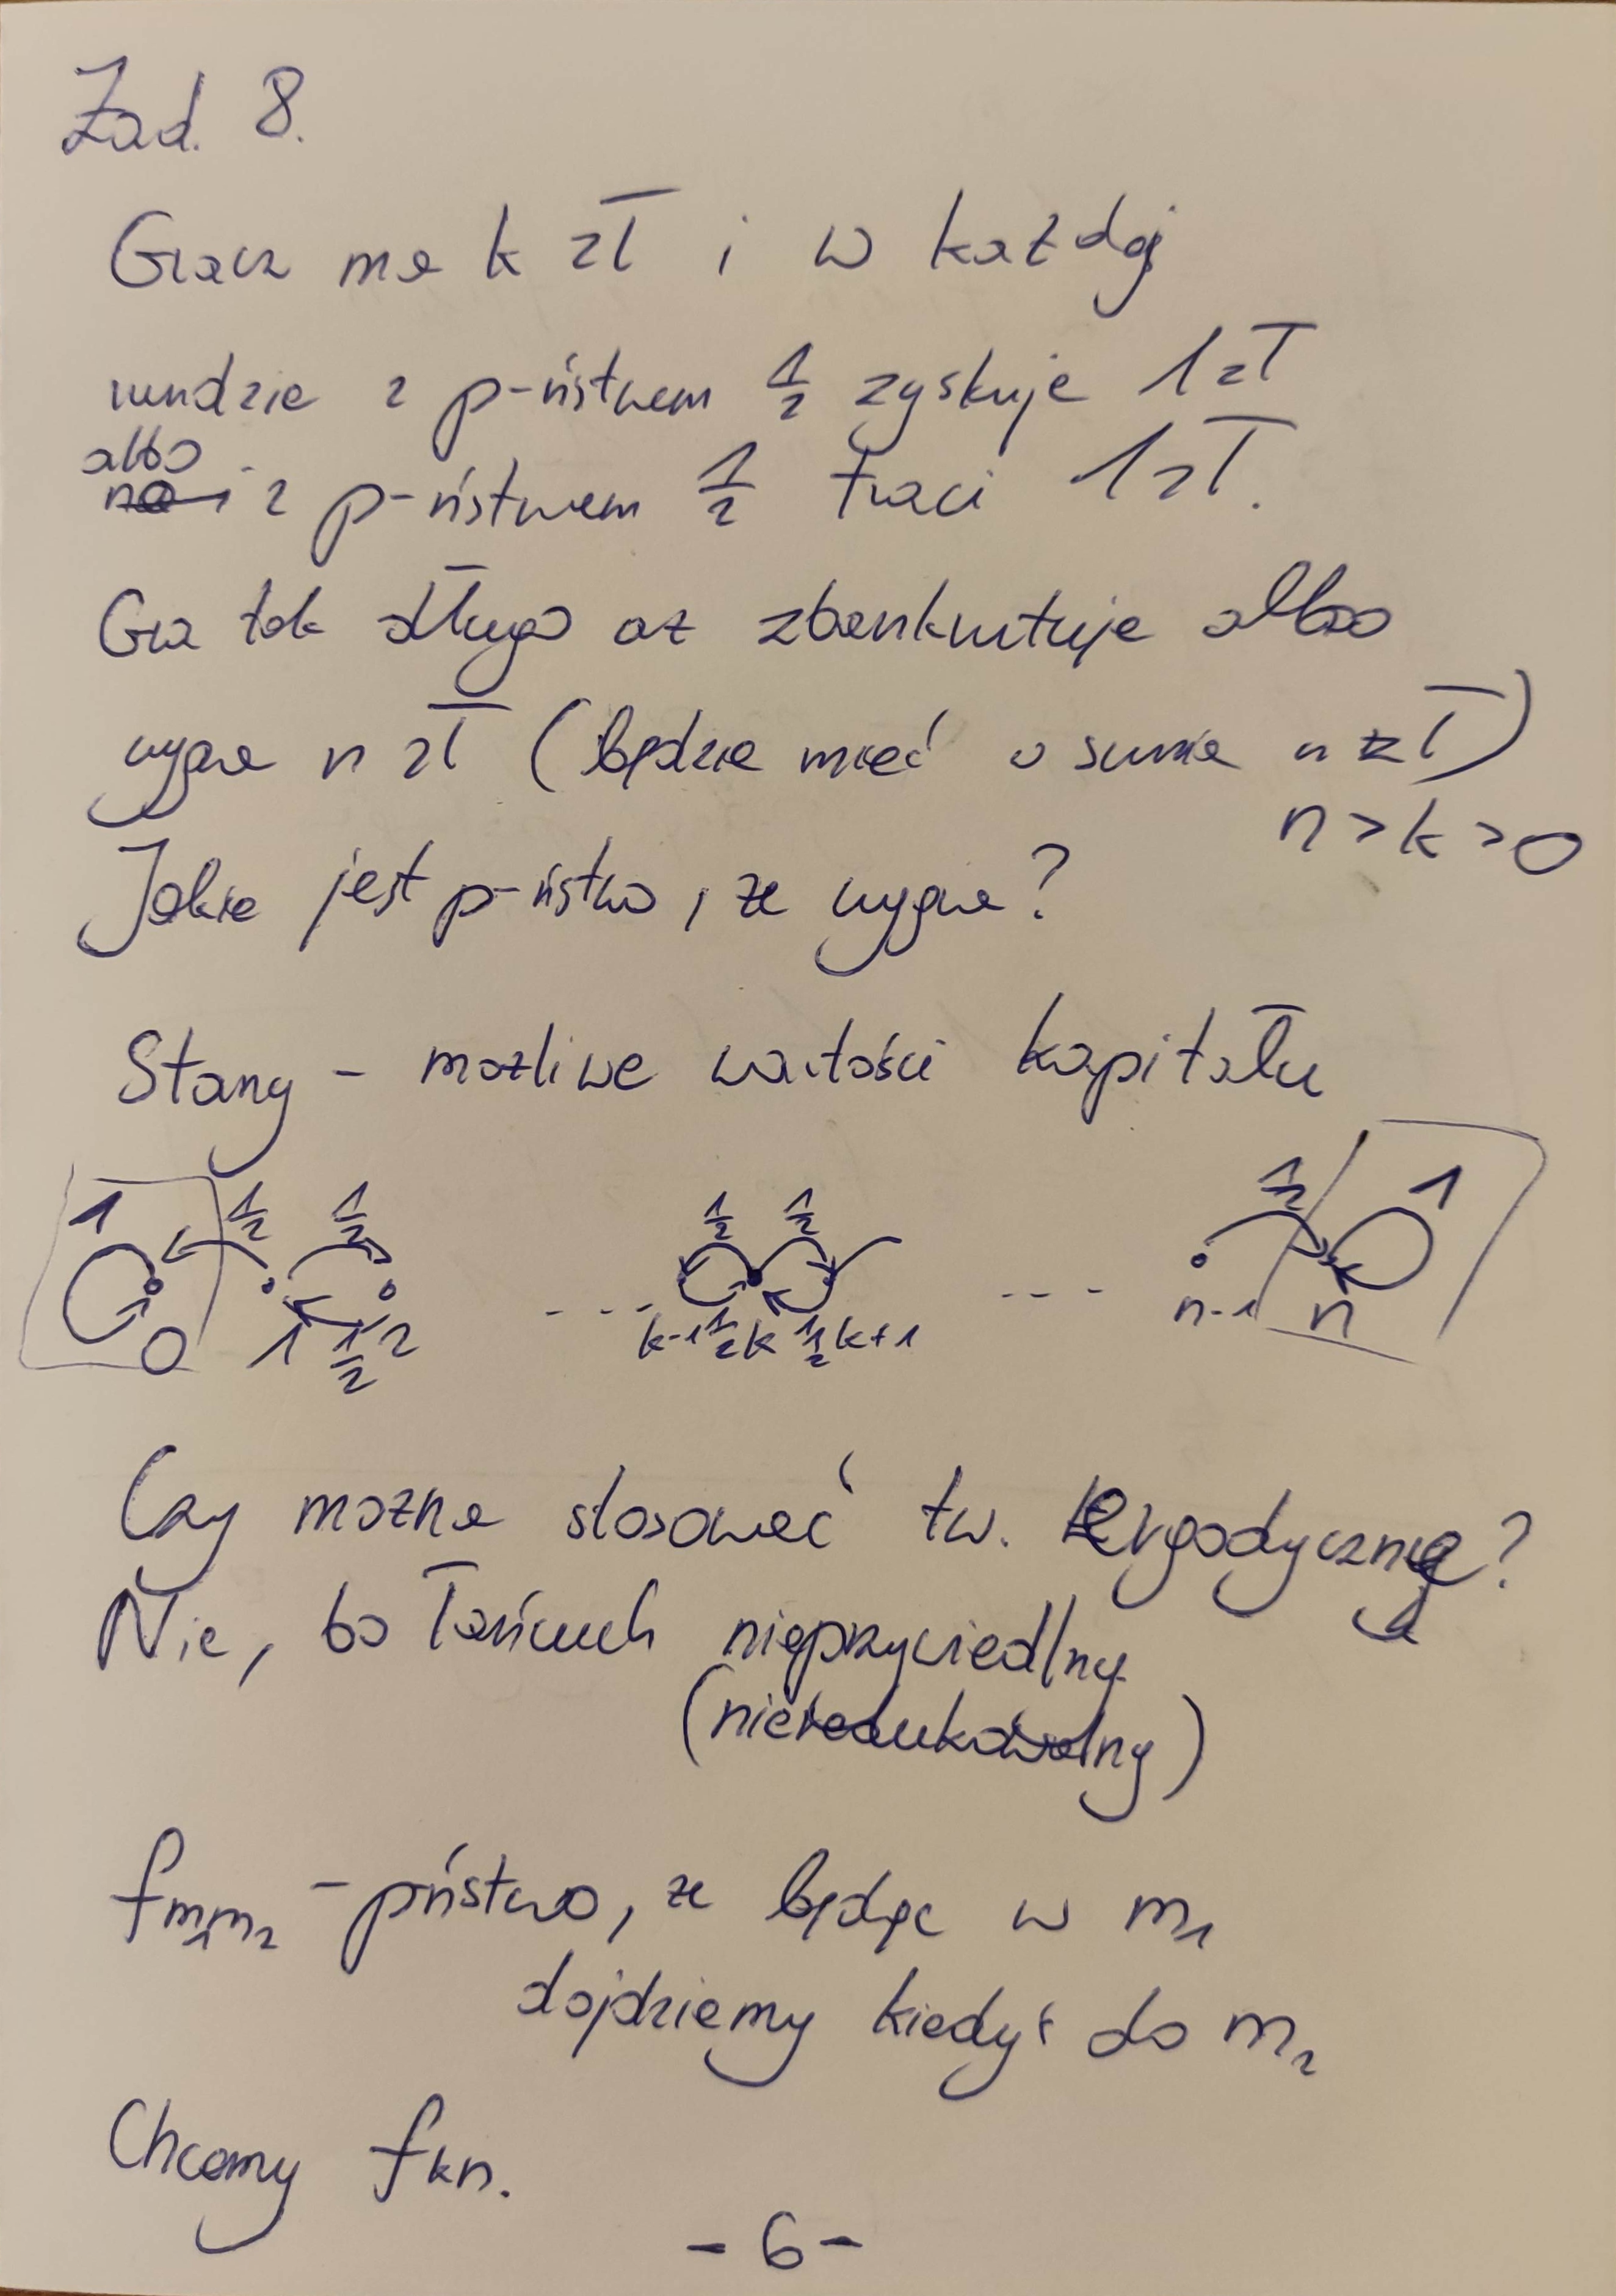 Zad. 8.
Gracz ma k zł i w każdej
rundzie z p-ństwem 1/2 zyskuje 1 zł
albo
z p-ństwem 1/2 traci 1 zł.
Gra tak długo aż zbankrutuje albo
wygra n zł (będzie mieć w sumie n zł)
n > k > 0
Jakie jest p-ństwo, że wygra?
Stany - możliwe wartości kapitału
1 1/2 1/2 1/2 1/2 1/2 1
0 1 1/2 2 ... k-1 1/2 k 1/2 k+1 ... n-1 n
Czy można stosować tw. ergodyczne?
Nie, bo łańcuch nieprzywiedlny
(nieredukowalny)
fm₁m₂ - pństwo, że będąc w m₁
dojdziemy kiedyś do m₂
Chcemy fkn.
- 6 -